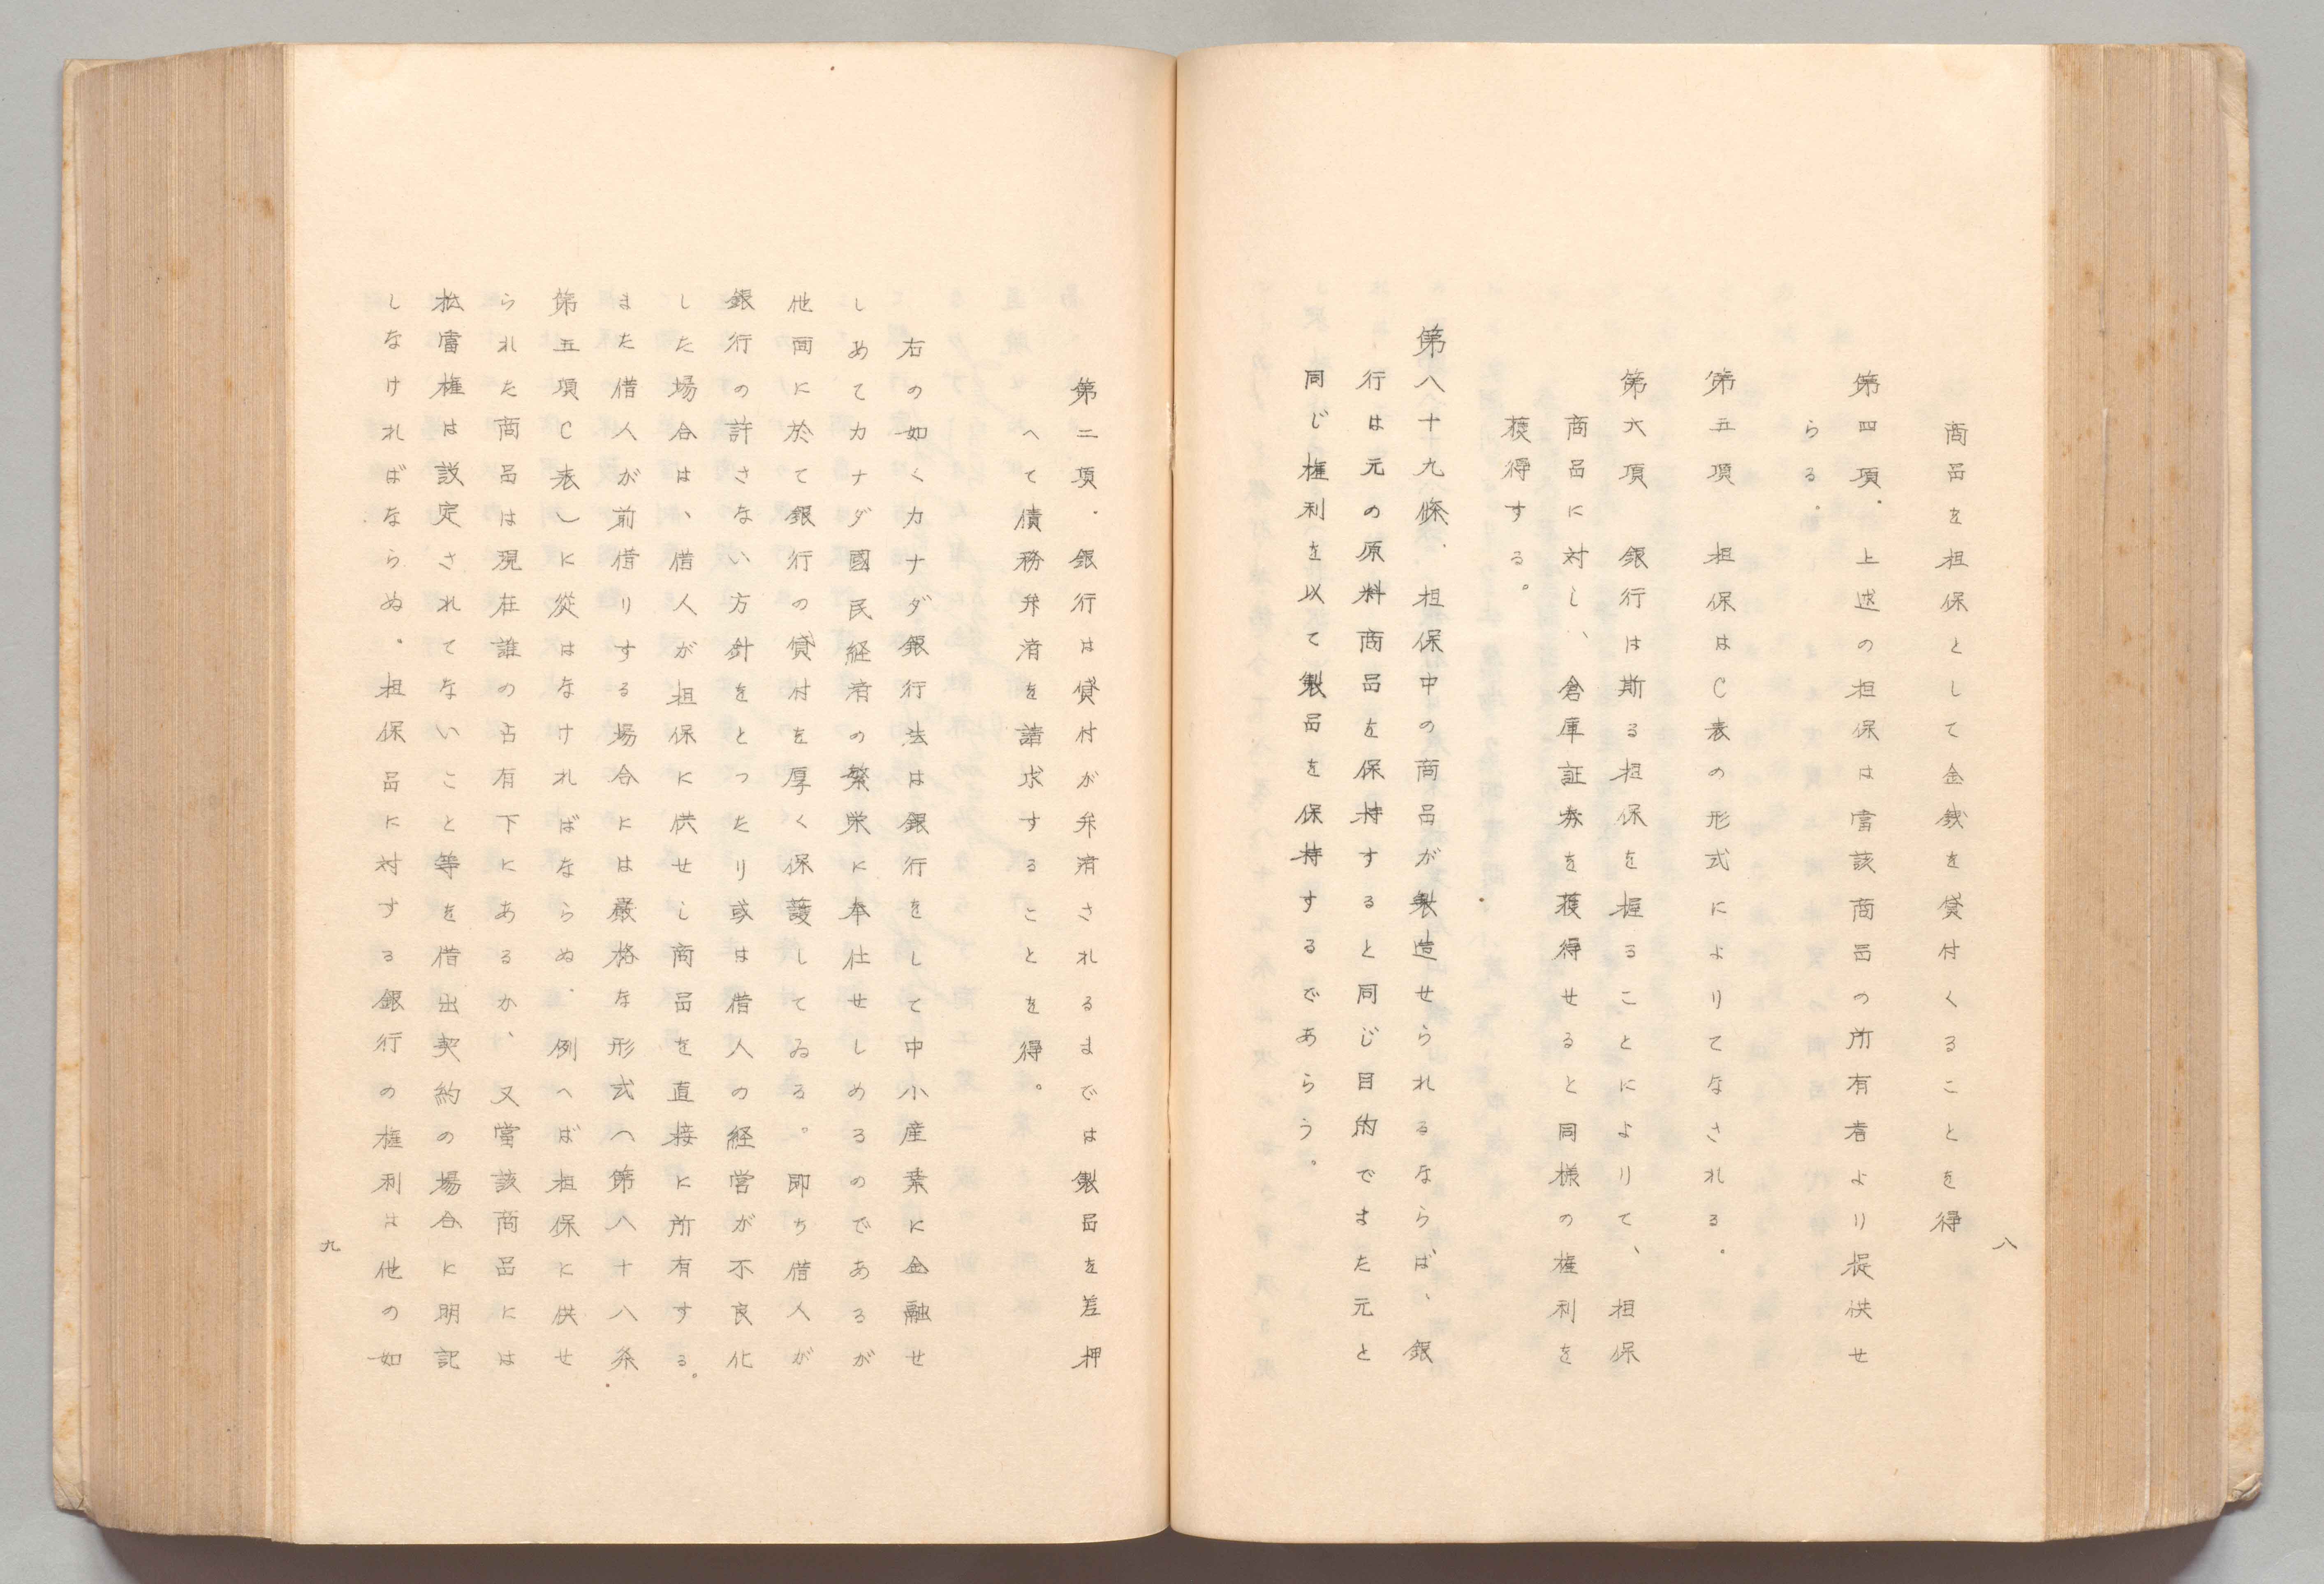 商品を担保として金銭を貸付くることを得
第四項．上述の担保は当該商品の所有者より提供せ
らる．
第五項　担保はC表の形式によりてなされる．
第六項　銀行は斯る担保を握ることによりて、担保
商品に対し、倉庫証券を獲得せると同様の権利を
獲得する。
第八十九條．担保中の商品が製造せられるならば、銀
行は元の原料商品を保持すると同じ目的でまた元と
同じ権利を以て製品を保持するであらう。
八
第二項．銀行は貸付が弁済されるまでは製品を差押
へて債務弁済を請求することを得。
右の如くカナダ銀行法は銀行をして中小産業に金融せ
しめてカナダ國民経済の繁栄に奉仕せしめるのであるが
他面に於て銀行の貸付を厚く保護してゐる。即ち借人が
銀行の許さない方針をとったり或は借人の経営が不良化
した場合は、借人が担保に供せし商品を直接に所有する。
また借人が前借りする場合には厳格な形式へ第八十八条．
第五項C表〵に從はなければならぬ．例へば担保に供せ
られた商品は現在誰の占有下にあるか、又當該商品には
松當権は設定されてないこと等を借出契約の場合に明記
しなければならぬ。担保品に対する銀行の権利は他の如
九